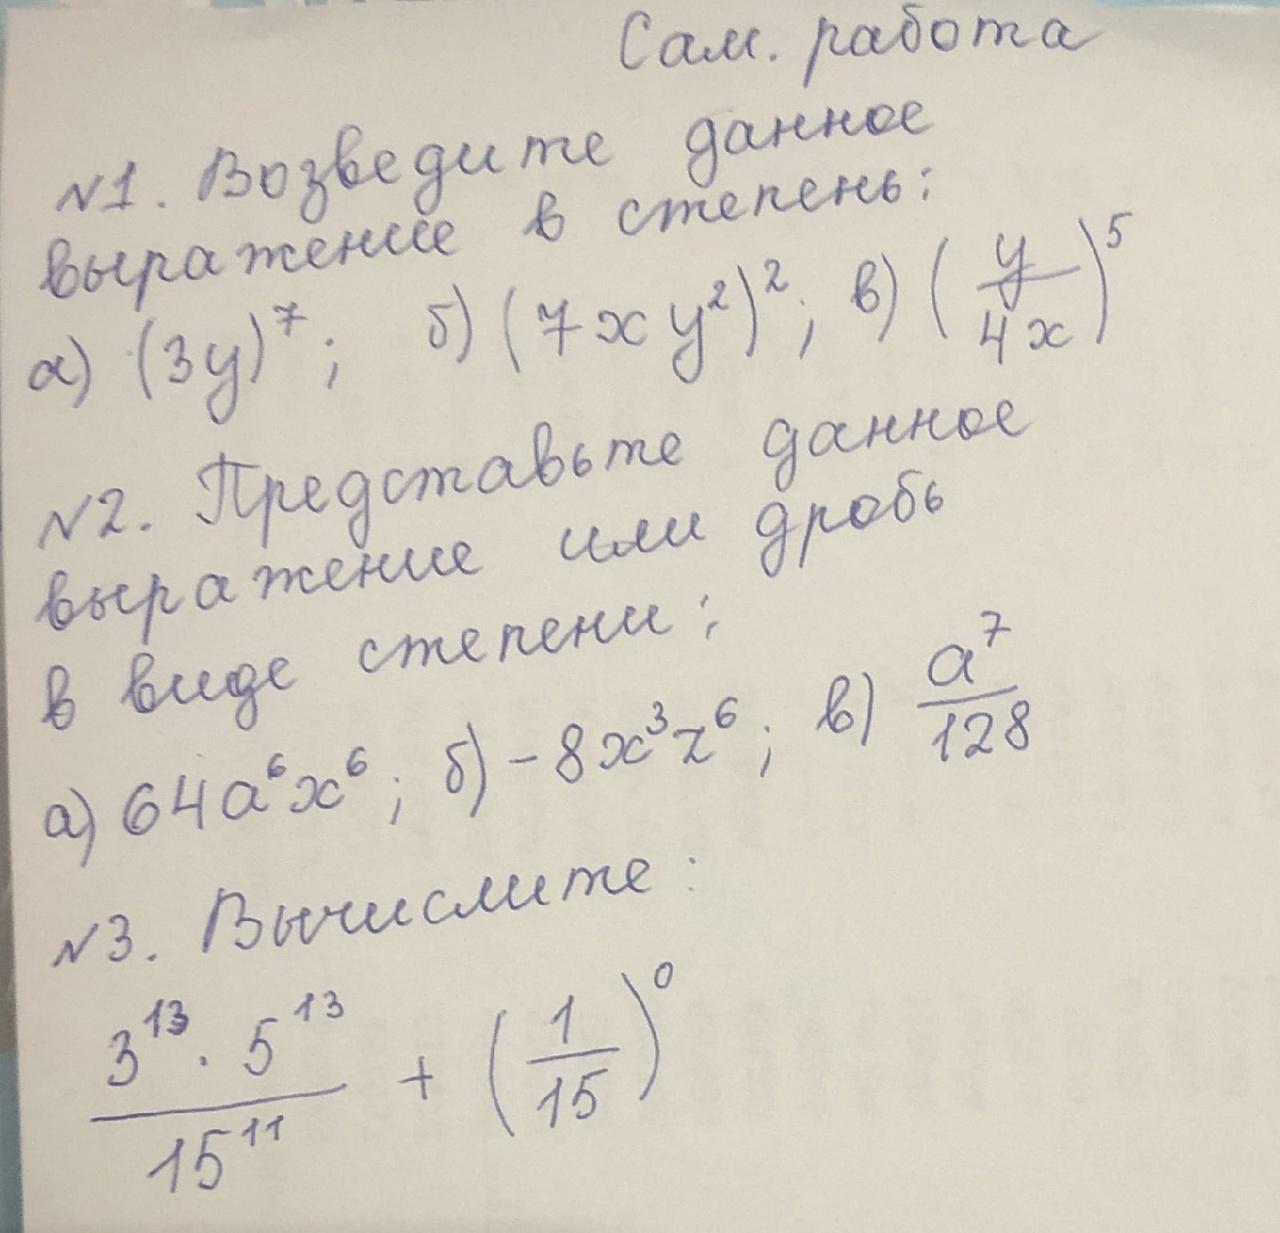 Сам. работа
№1. Возведите данное
выражение в степень:
а) (3y)⁷; б) (7xy²)²; в) (y/4x)⁵
№2. Представьте данное
выражение или дробь
в виде степени:
а) 64a⁶x⁶; б) -8x³z⁶; в) a⁷/128
№3. Вычислите:
3¹³ · 5¹³/15¹¹ + (1/15)⁰